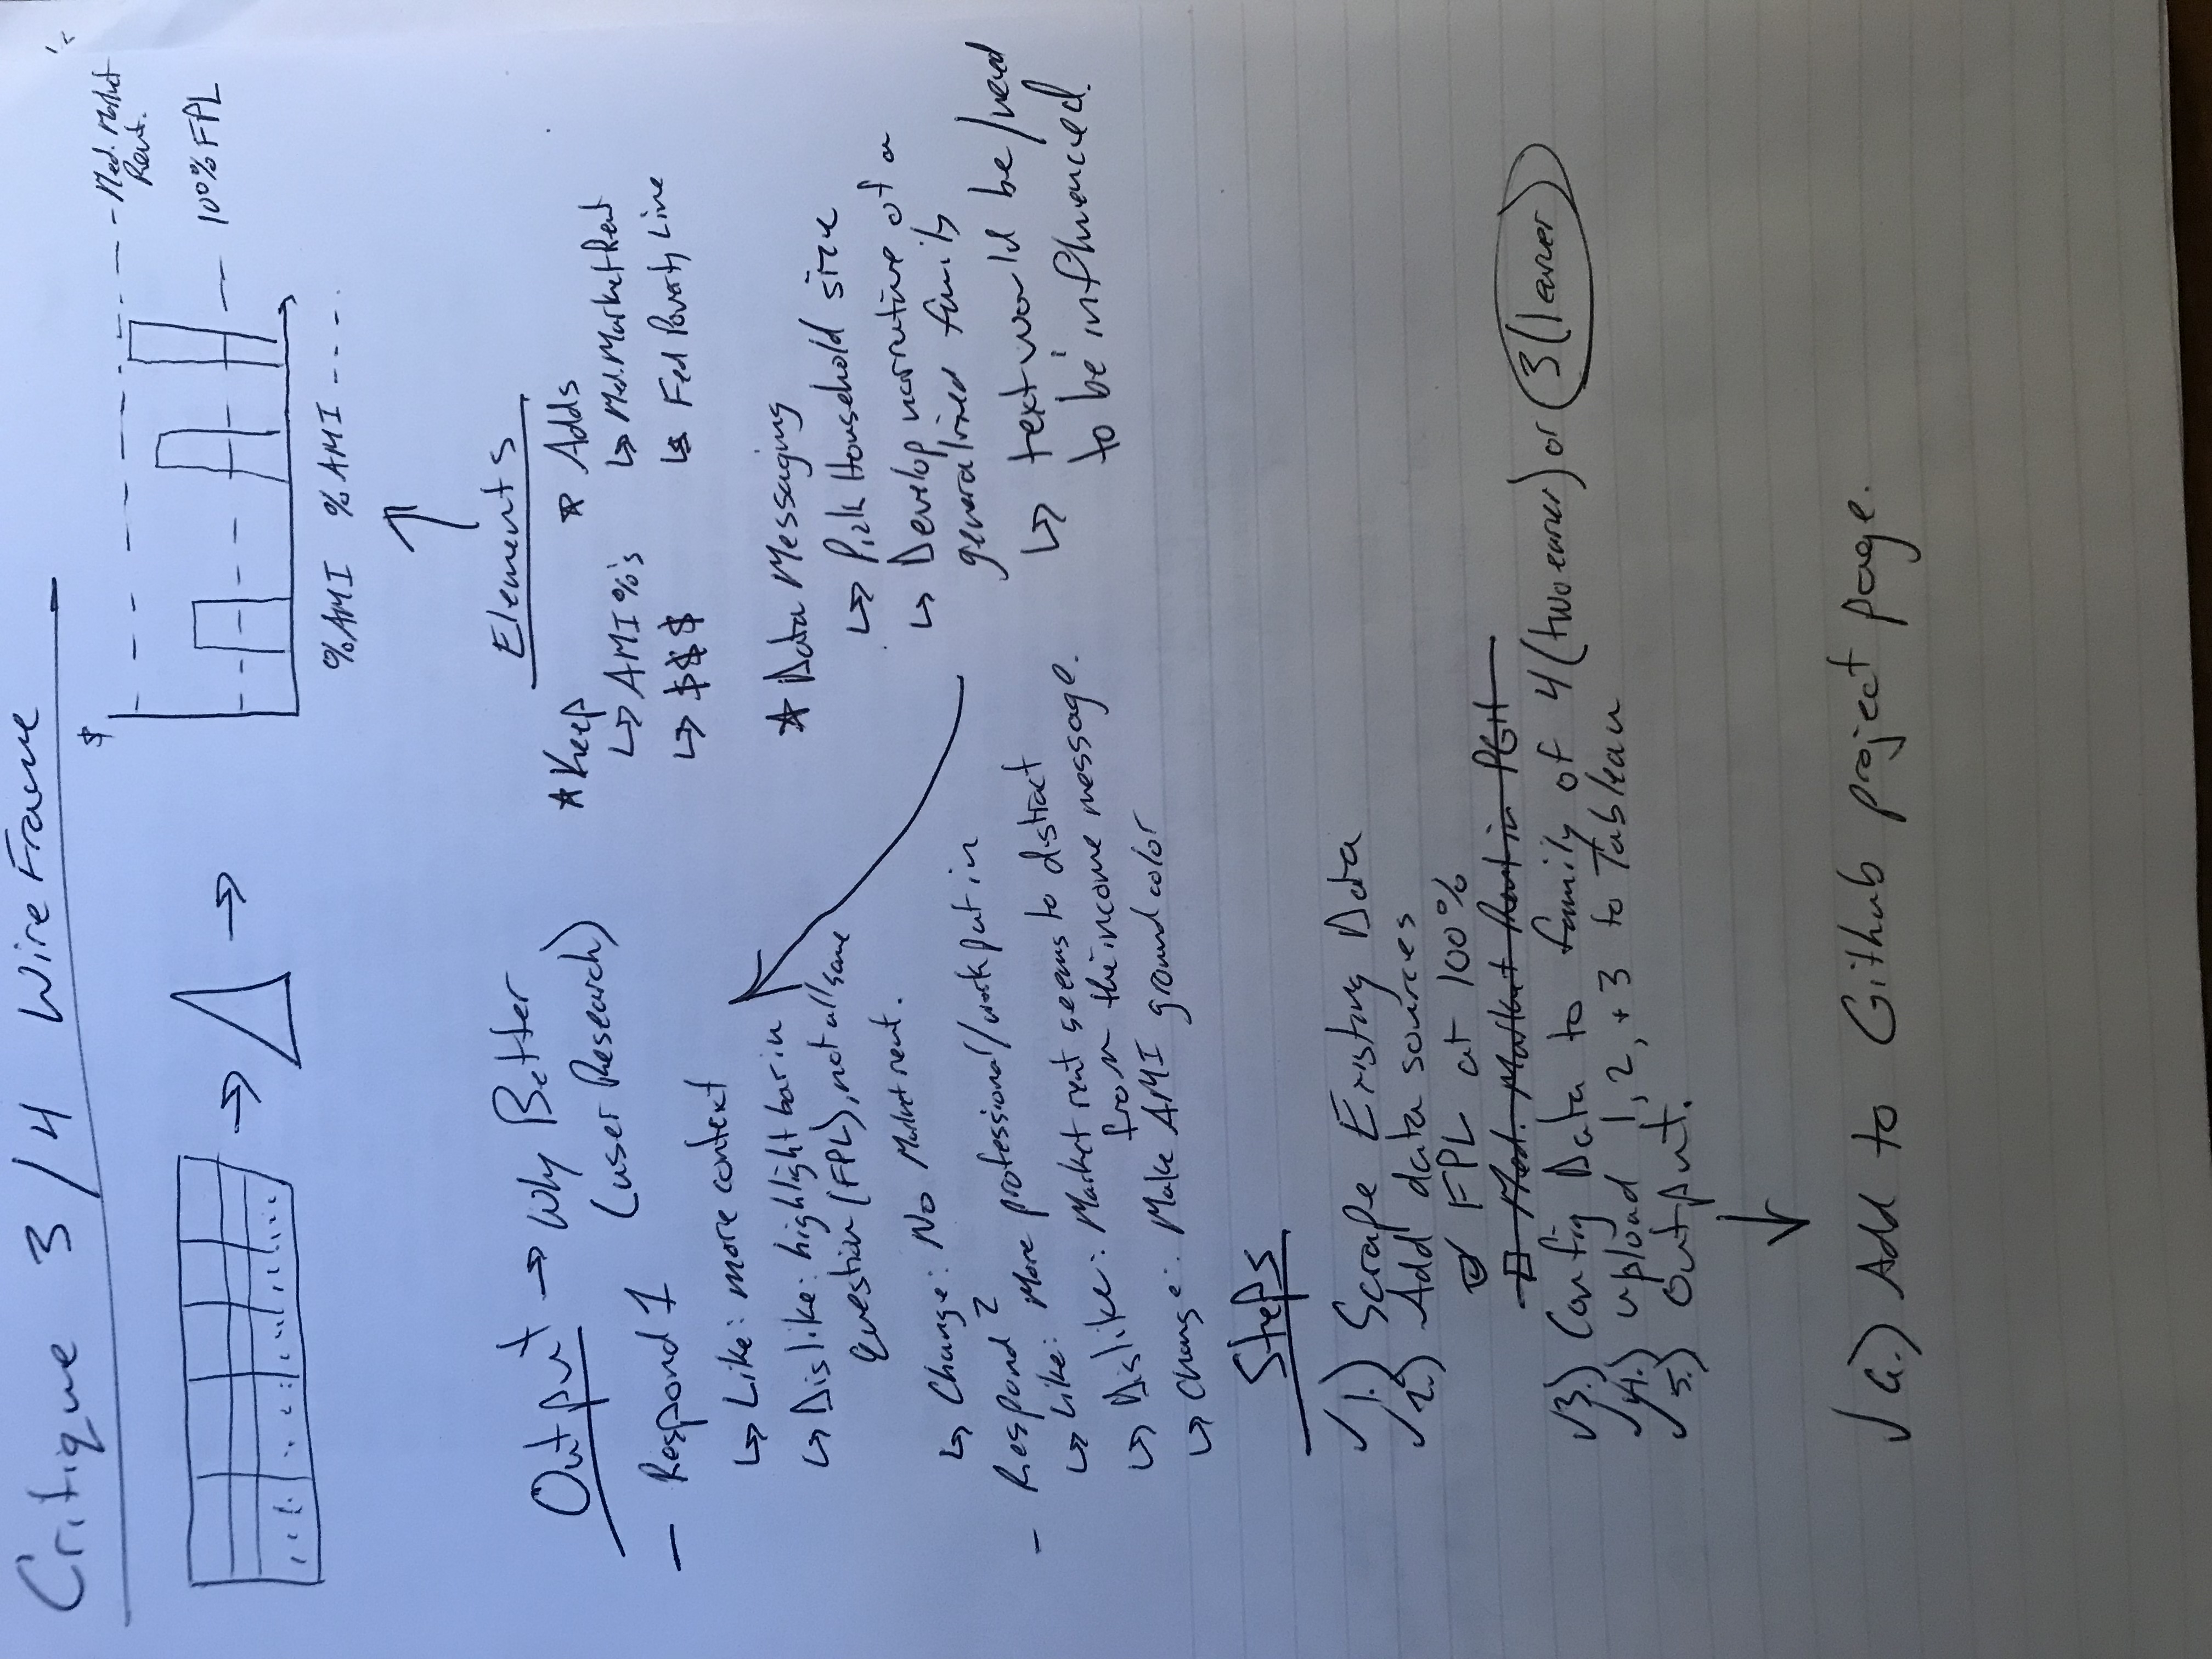 Critique 3/4 WireFrame
$
- Med. Market
Rent.
100% FPL
%AMI %AMI ----
Elements
* Keep
↳ AMI %'s
↳ $$$
* Adds
↳ Med. Market Rent
↳ Fed Poverty Line
* Data Messaging
↳ Pick Household size
↳ Develop narrative of a
generalized family
↳ text would be/need
to be influenced.
Output → Why Better
(user Research)
- Respond 1
↳ Like: more context
↳ Dislike: highlight bar in
question (FPL), not all same
↳ Change: No Market rent.
- Respond 2
↳ Like: More professional/work put in
↳ Dislike: Market rent seems to distract
from the income message.
↳ Change: Make AMI ground color
Steps
✓ 1.) Scrape Existing Data
✓ 2.) Add data sources
☑ FPL at 100%
☐ Med. Market Rent in PGH
✓ 3.) Config Data to family of 4 (two earner) or 3 (1 earner)
✓ 4.) upload 1, 2, + 3 to Tableau
✓ 5.) Output.
✓ 6.) Add to Github project page.